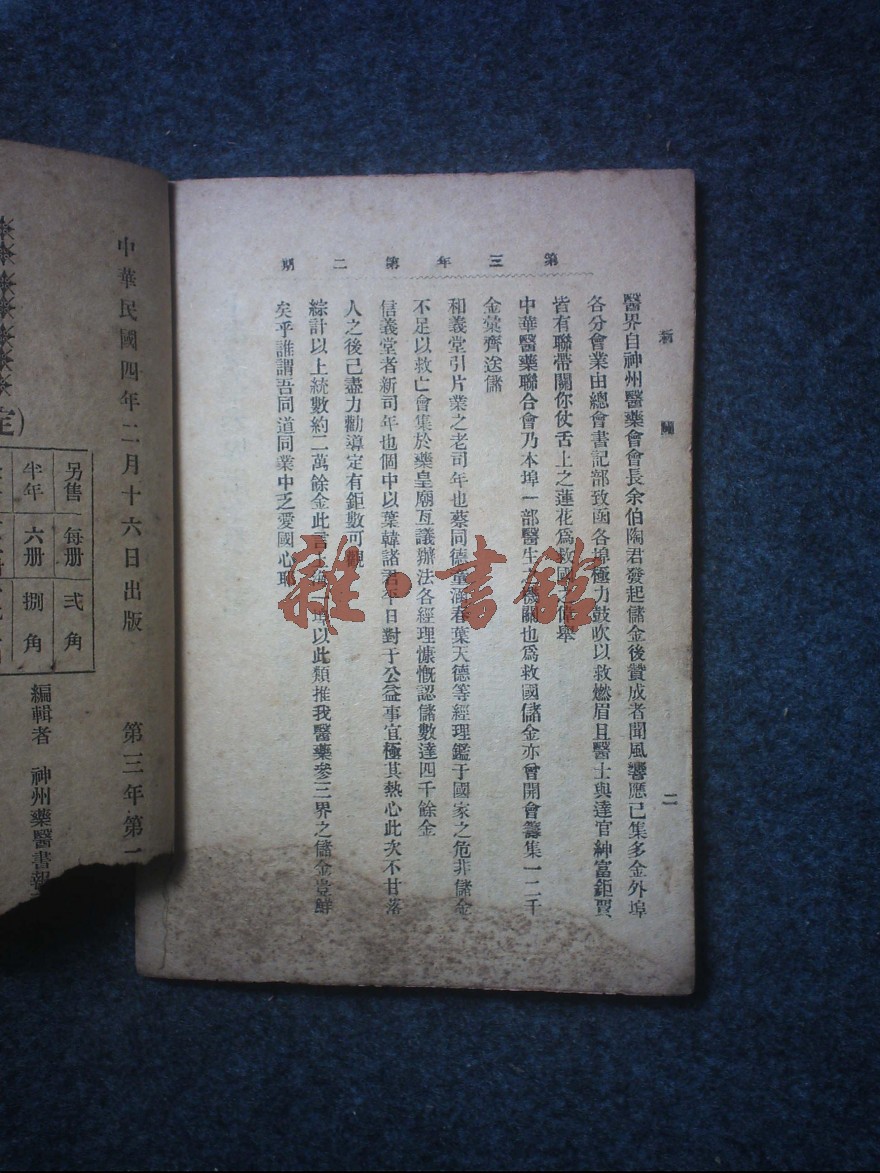 第三年第二期
新聞
二
醫界自神州醫藥會會長余伯陶君發起儲金後贊成者聞風響應已集多金外埠
各分會業由總會書記部致函各埠極力鼓吹以救燃眉且醫士與達官紳富鉅賈、
皆有聯帶關你仗舌上之蓮花爲救國之偉舉
中華醫藥聯合會乃本埠一部醫生之機關也爲救國儲金亦曾開會籌集一二千
金彙齊送儲
和義堂引片業之老司年也蔡同德童涵春葉天德等經理鑑于國家之危非儲金
不足以救亡會集於藥皇廟互議辦法各經理慷慨認儲數達四千餘金
信義堂者新司年也個中以葉韓諸君年日對于公益事宜極其熱心此次不甘落
人之後己盡力勸導定有鉅數可觀
綜計以上統數約二萬餘金此言上海一埠以此類推我醫藥參三界之儲金豈鮮
矣乎誰謂吾同道同業中乏愛國心耶
中華民國四年二月十六日出版 第三年第
編輯者 神州藥醫書報
另售 每册 弍角
半年 六册 捌角
定)
雜·書館